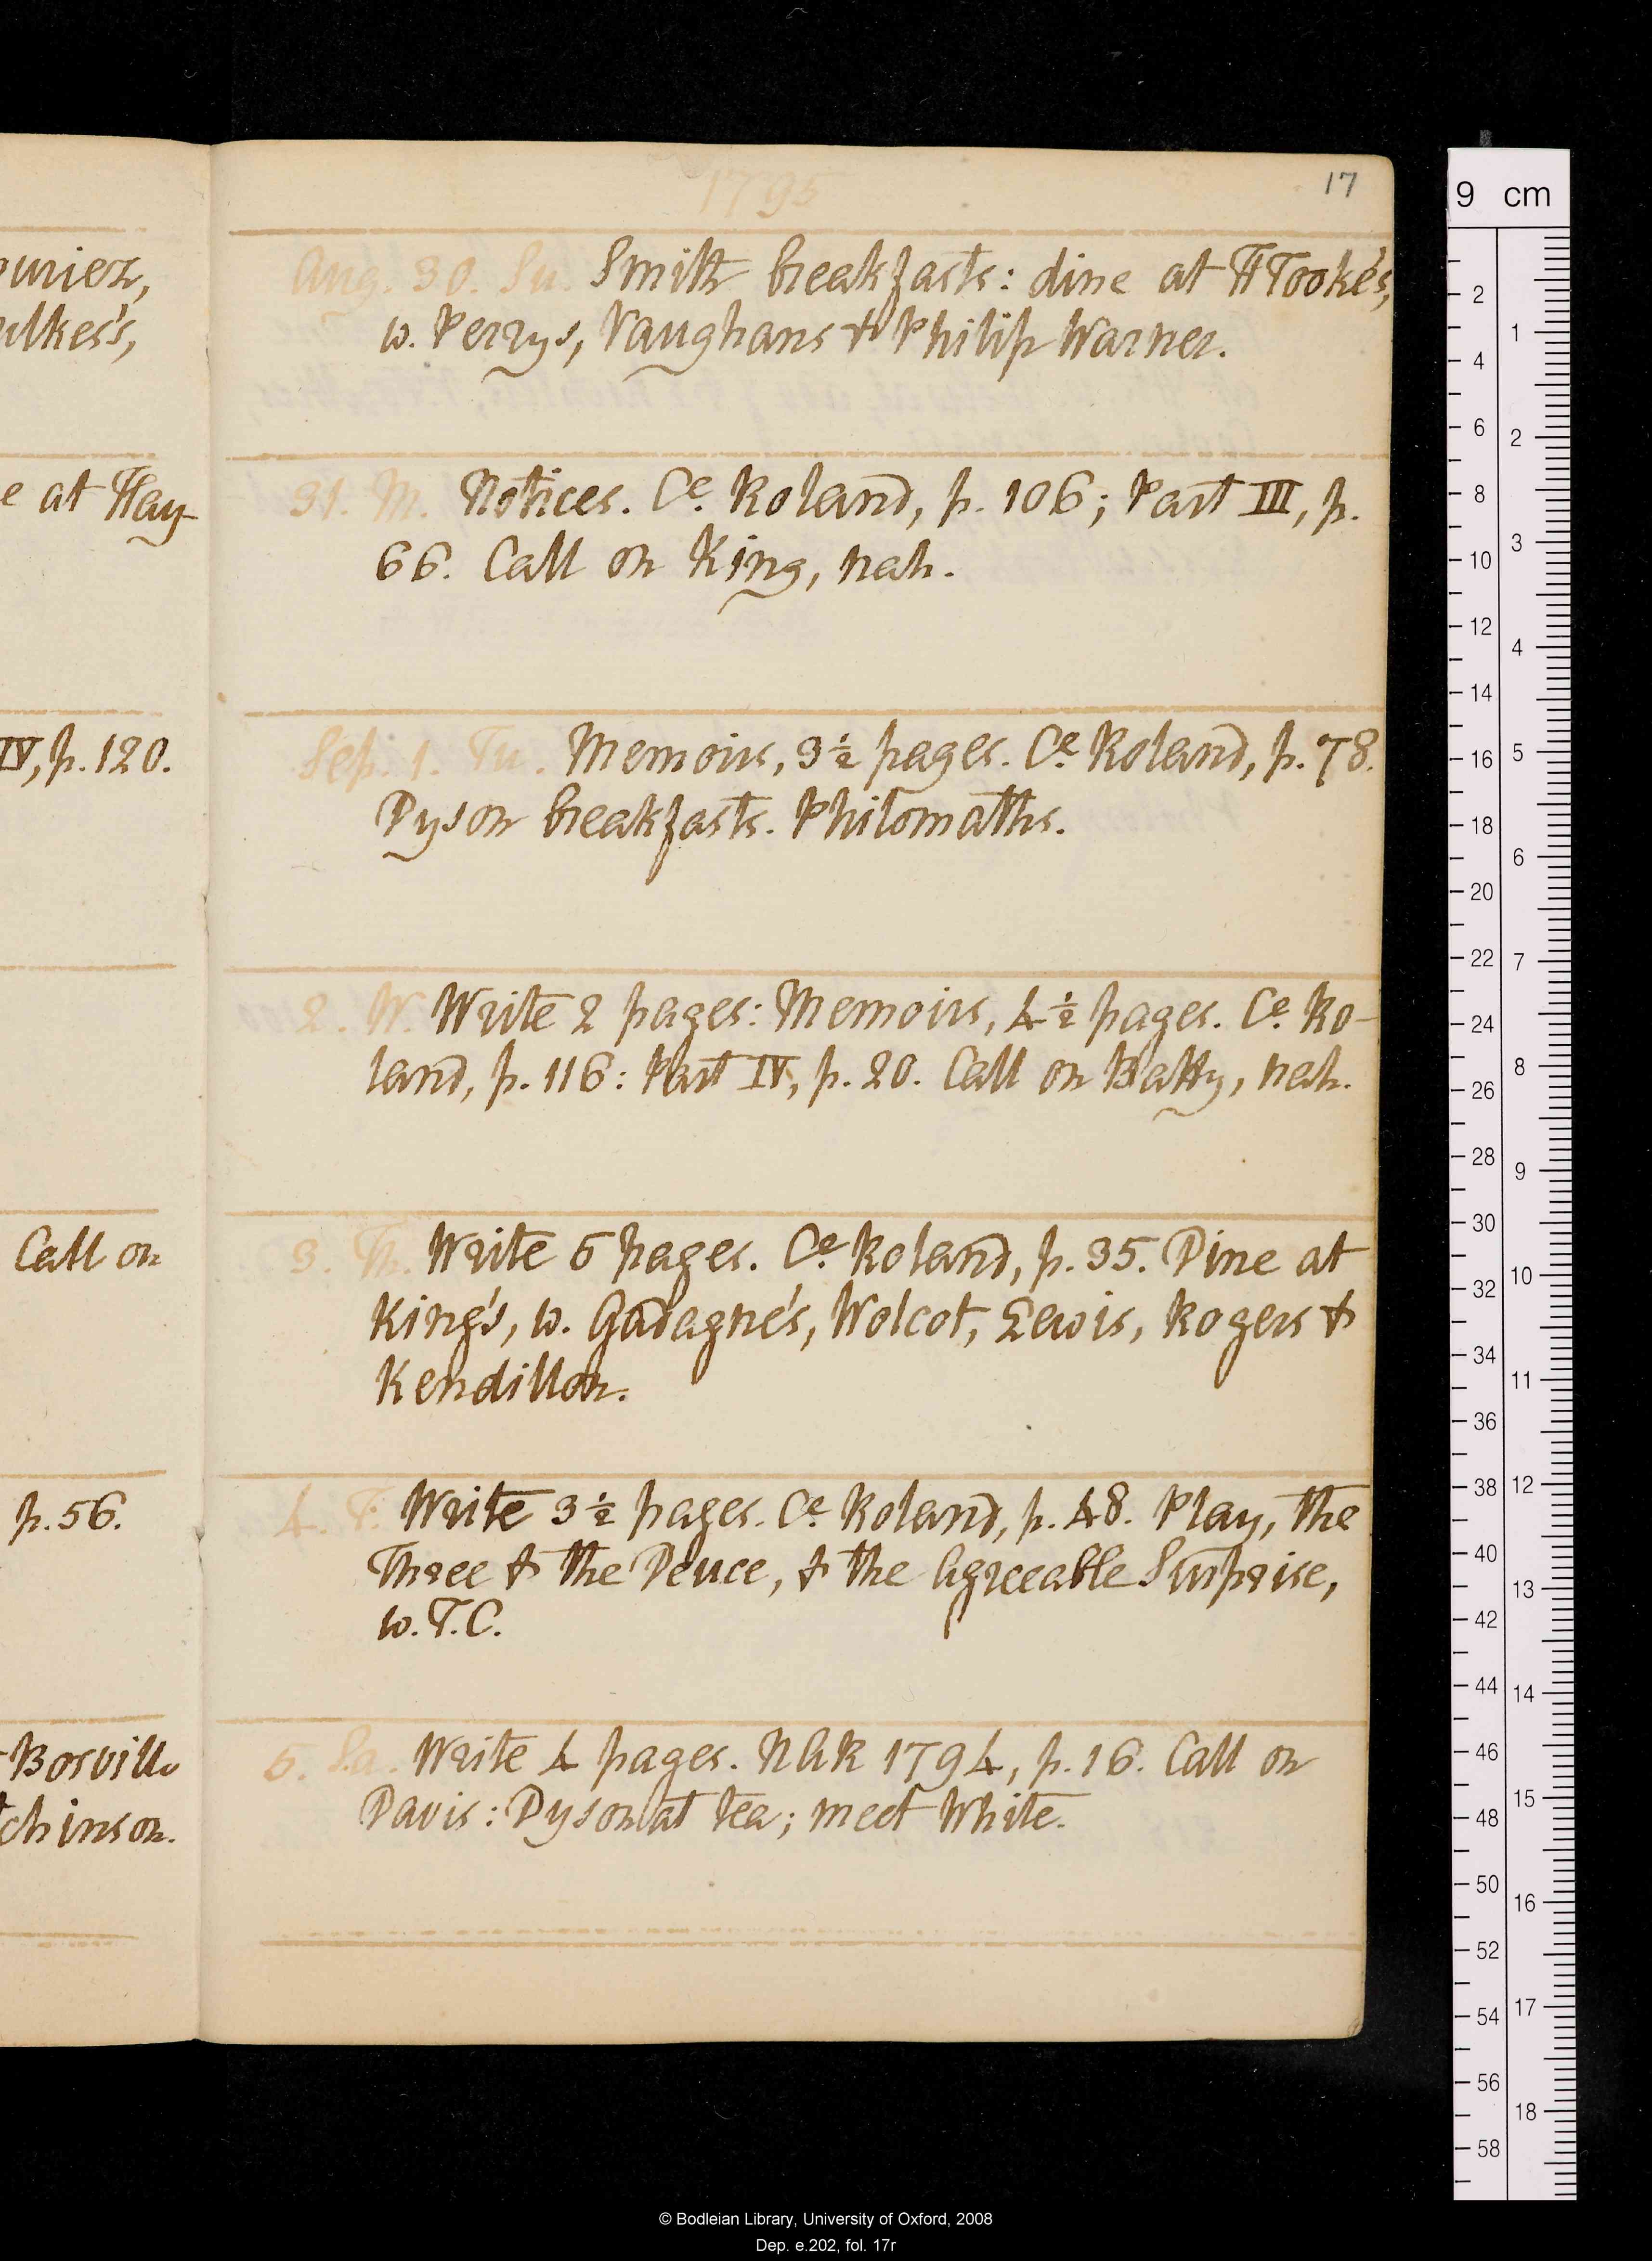 1795
17
ouriez,
ulkes's,
e at Hay-
IV, p. 120.
Call on
p. 56.
Bosville
tchinson.
Aug. 30. Su. Smith breakfasts: dine at HTooke's,
w. Perrys, Vaughans & Philip Warner.
31. M. Notices. Ce. Roland, p. 106; Part III, p.
66. Call on King, nah.
Sep. 1. Tu. Memoirs, 3½ pages. Ce. Roland, p. 78.
Dyson breakfasts. Philomaths.
2. W. Write 2 pages: Memoirs, 4½ pages. Ce. Ro-
land, p. 116: Part IV, p. 20. Call on Batty, nah.
3. Th. Write 5 pages. Ce. Roland, p. 35. Dine at
King's, w. Gadagne's, Wolcot, Lewis, Rogers &
Kendillon.
4. F. Write 3½ pages. Ce. Roland, p. 48. Play, the
Three & the Deuce, & the Agreeable Surprise,
w. T.C.
5. Sa. Write 4 pages. NAR 1794, p. 16. Call on
Davis: Dyson at tea; meet White.
9 cm
2 4 6 8 10 12 14 16 18 20 22 24 26 28 30 32 34 36 38 40 42 44 46 48 50 52 54 56 58
1 2 3 4 5 6 7 8 9 10 11 12 13 14 15 16 17 18
© Bodleian Library, University of Oxford, 2008
Dep. e.202, fol. 17r